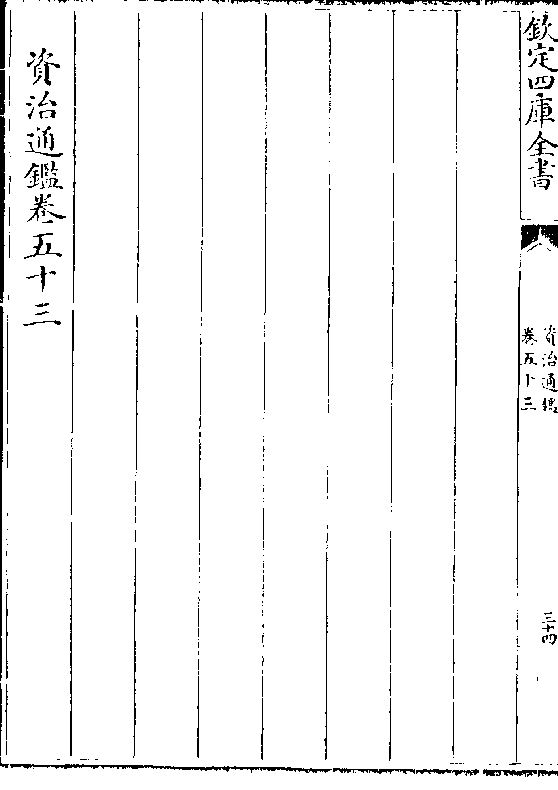 欽定四庫全書
資治通鑑
卷五十三
三十四
資治通鑑卷五十三